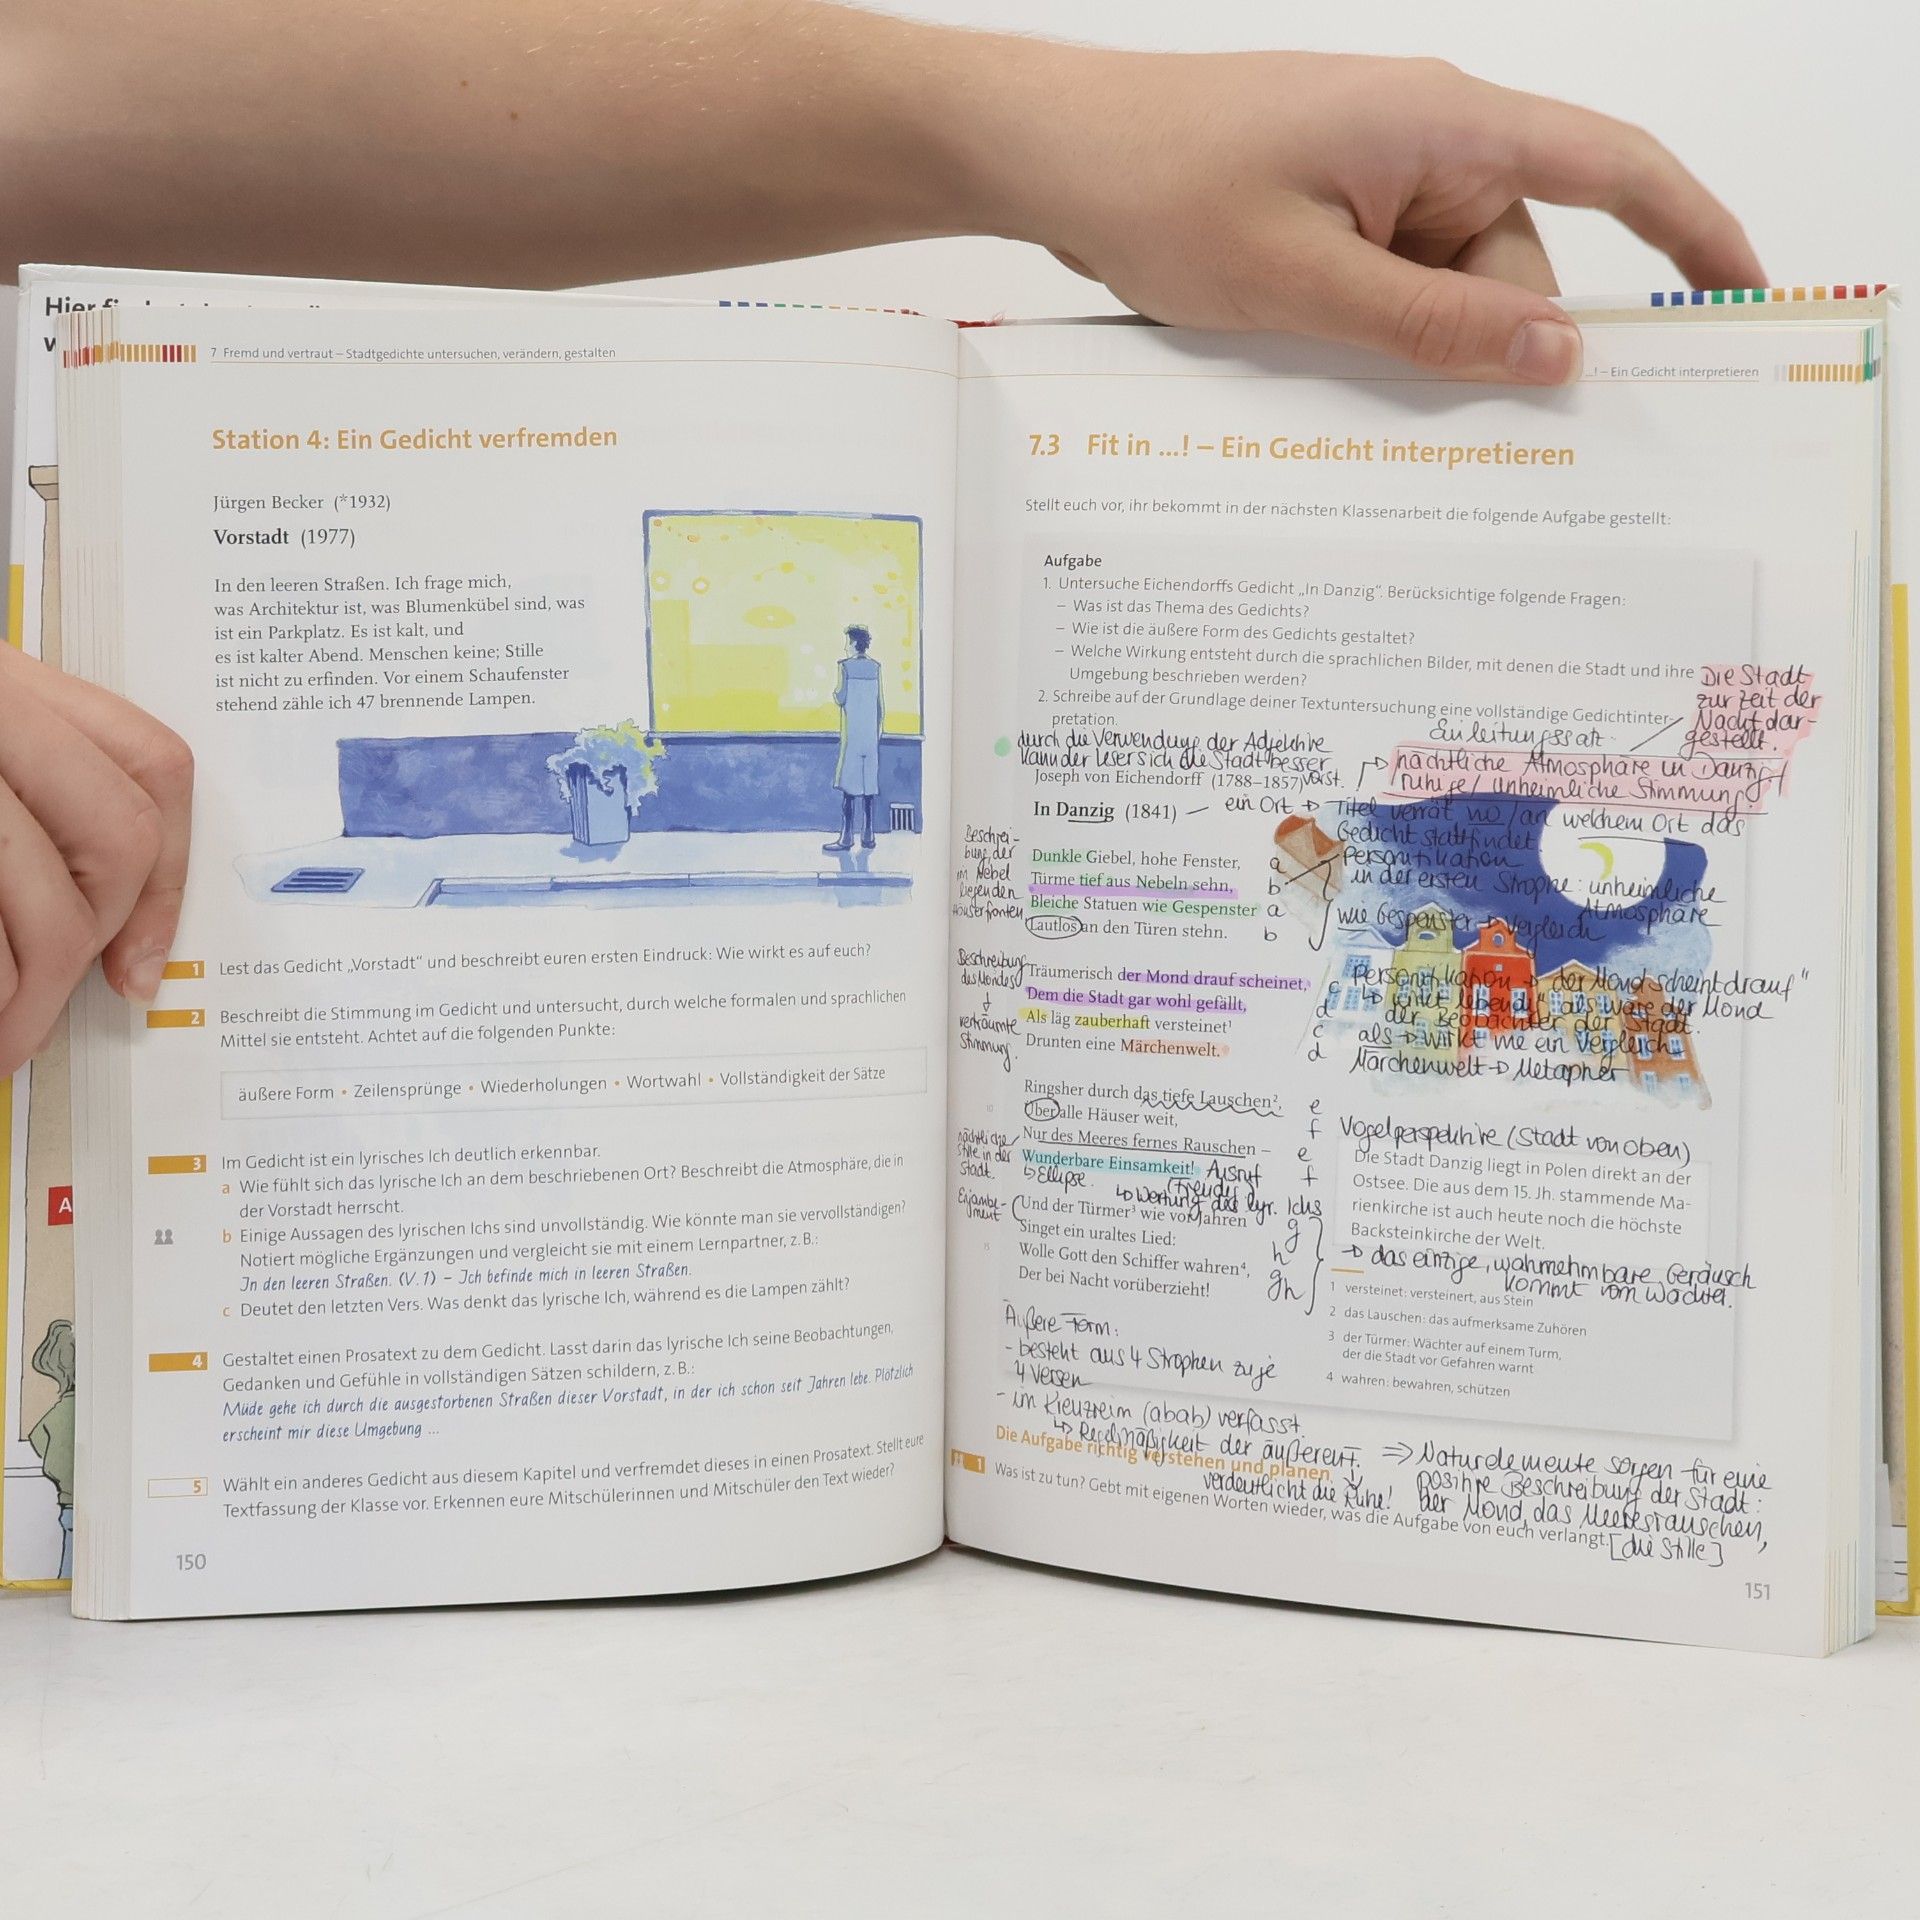 7 Fremd und vertraut – Stadtgedichte untersuchen, verändern, gestalten
Station 4: Ein Gedicht verfremden
Jürgen Becker (*1932)
Vorstadt (1977)
In den leeren Straßen. Ich frage mich,
was Architektur ist, was Blumenkübel sind, was
ist ein Parkplatz. Es ist kalt, und
es ist kalter Abend. Menschen keine; Stille
ist nicht zu erfinden. Vor einem Schaufenster
stehend zähle ich 47 brennende Lampen.
1 Lest das Gedicht „Vorstadt“ und beschreibt euren ersten Eindruck: Wie wirkt es auf euch?
2 Beschreibt die Stimmung im Gedicht und untersucht, durch welche formalen und sprachlichen
Mittel sie entsteht. Achtet auf die folgenden Punkte:
äußere Form • Zeilensprünge • Wiederholungen • Wortwahl • Vollständigkeit der Sätze
3 Im Gedicht ist ein lyrisches Ich deutlich erkennbar.
a Wie fühlt sich das lyrische Ich an dem beschriebenen Ort? Beschreibt die Atmosphäre, die in
der Vorstadt herrscht.
b Einige Aussagen des lyrischen Ichs sind unvollständig. Wie könnte man sie vervollständigen?
Notiert mögliche Ergänzungen und vergleicht sie mit einem Lernpartner, z. B.:
In den leeren Straßen. (V. 1) – Ich befinde mich in leeren Straßen.
c Deutet den letzten Vers. Was denkt das lyrische Ich, während es die Lampen zählt?
4 Gestaltet einen Prosatext zu dem Gedicht. Lasst darin das lyrische Ich seine Beobachtungen,
Gedanken und Gefühle in vollständigen Sätzen schildern, z. B.:
Müde gehe ich durch die ausgestorbenen Straßen dieser Vorstadt, in der ich schon seit Jahren lebe. Plötzlich
erscheint mir diese Umgebung ...
5 Wählt ein anderes Gedicht aus diesem Kapitel und verfremdet dieses in einen Prosatext. Stellt eure
Textfassung der Klasse vor. Erkennen eure Mitschülerinnen und Mitschüler den Text wieder?
150
...! – Ein Gedicht interpretieren
7.3 Fit in ...! – Ein Gedicht interpretieren
Stellt euch vor, ihr bekommt in der nächsten Klassenarbeit die folgende Aufgabe gestellt:
Aufgabe
1. Untersuche Eichendorffs Gedicht „In Danzig“. Berücksichtige folgende Fragen:
– Was ist das Thema des Gedichts?
– Wie ist die äußere Form des Gedichts gestaltet?
– Welche Wirkung entsteht durch die sprachlichen Bilder, mit denen die Stadt und ihre
Umgebung beschrieben werden?
2. Schreibe auf der Grundlage deiner Textuntersuchung eine vollständige Gedichtinter-
pretation.
Die Stadt
zur Zeit der
Nacht dar-
gestellt.
Einleitungssatz
durch die Verwendung der Adjektive
kann der Leser sich die Stadt besser
vorst.
nächtliche Atmosphäre in Danzig/
ruhige/unheimliche Stimmung!
Joseph von Eichendorff (1788–1857)
In Danzig (1841)
ein Ort → Titel verrät wo/an welchem Ort das
Gedicht stattfindet
Dunkle Giebel, hohe Fenster, a
Türme tief aus Nebeln sehn, b
Bleiche Statuen wie Gespenster a
Lautlos an den Türen stehn. b
Beschrei-
bung der
im Nebel
liegenden
Häuserfronten
Personifikation
in der ersten Strophe: unheimliche
Atmosphäre
wie Gespenster → Vergleich
Träumerisch der Mond drauf scheinet, c
Dem die Stadt gar wohl gefällt, d
Als läg zauberhaft versteinet¹ c
Drunten eine Märchenwelt. d
Beschreibung
des Mondes
↓
verträumte
Stimmung.
Personifikation → der Mond scheint drauf"
↳ wirkt lebendig als wäre der Mond
der Beobachter der Stadt.
als → wirkt wie ein Vergleich
Märchenwelt → Metapher
Ringsher durch das tiefe Lauschen², e
10 Über alle Häuser weit, f
Nur des Meeres fernes Rauschen – e
Wunderbare Einsamkeit! f
nächtliche
Stille in der
Stadt.
↳ Ellipse.
Ausruf
(Freude)
↳ Wertung des lyr. Ichs
Vogelperspektive (Stadt von oben)
Die Stadt Danzig liegt in Polen direkt an der
Ostsee. Die aus dem 15. Jh. stammende Ma-
rienkirche ist auch heute noch die höchste
Backsteinkirche der Welt.
Enjambe-
ment
Und der Türmer³ wie vor Jahren g
15 Singet ein uraltes Lied: h
Wolle Gott den Schiffer wahren⁴, g
Der bei Nacht vorüberzieht! h
→ das einzige, wahrnehmbare Geräusch
kommt vom Wächter.
1 versteinet: versteinert, aus Stein
2 das Lauschen: das aufmerksame Zuhören
3 der Türmer: Wächter auf einem Turm,
der die Stadt vor Gefahren warnt
4 wahren: bewahren, schützen
Äußere Form:
- besteht aus 4 Strophen zu je
4 Versen
- im Kreuzreim (abab) verfasst.
↳ Regelmäßigkeit der äußeren F.
↓
verdeutlicht die Ruhe!
⇒ Naturelemente sorgen für eine
positive Beschreibung der Stadt:
der Mond, das Meeresrauschen,
[die Stille]
Die Aufgabe richtig verstehen und planen
1 Was ist zu tun? Gebt mit eigenen Worten wieder, was die Aufgabe von euch verlangt.
151